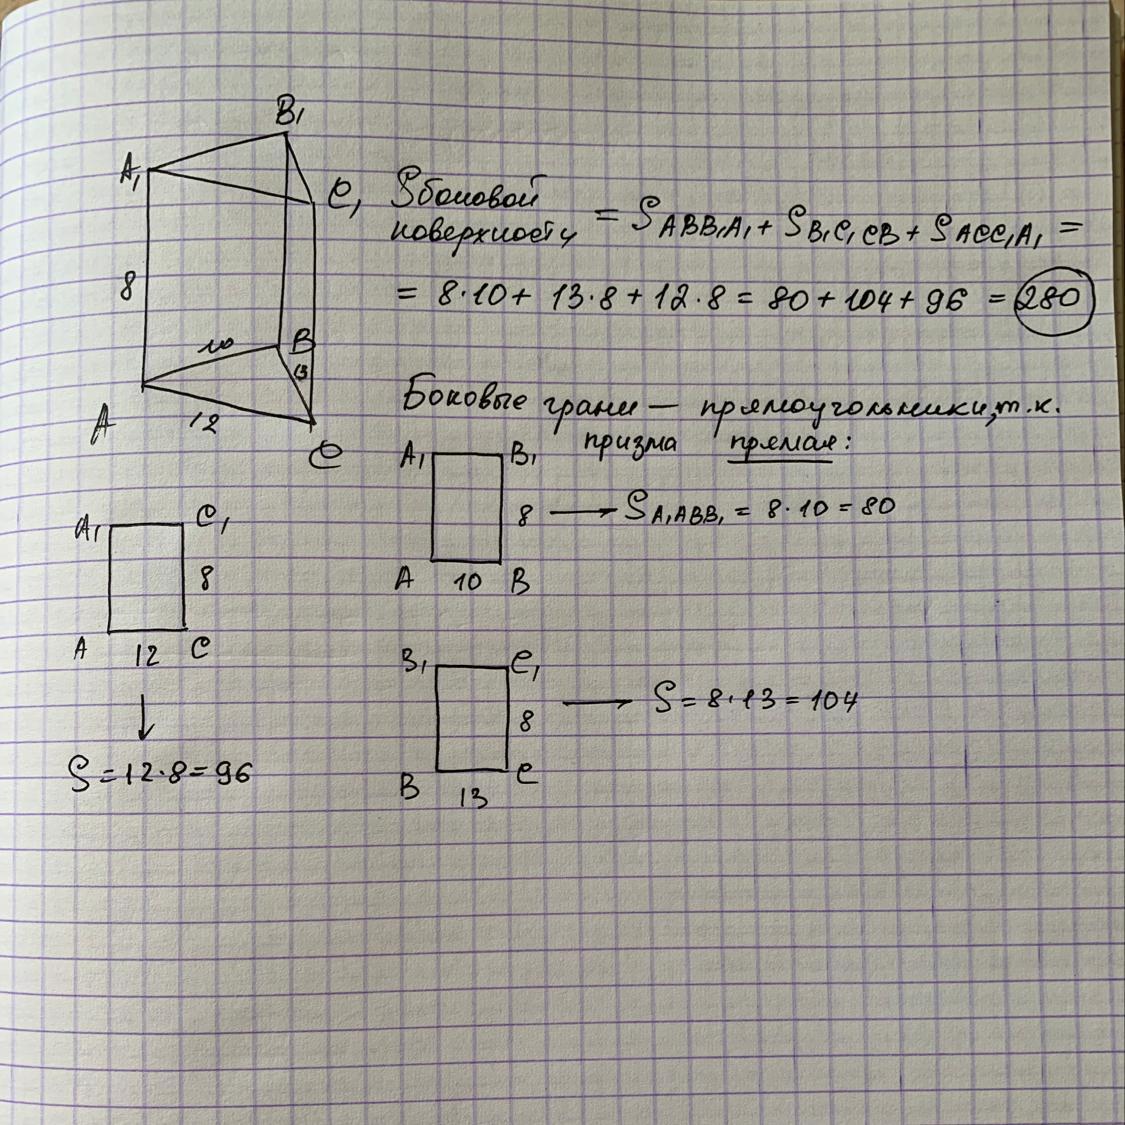 B₁
A₁
C₁
8
10
B
13
A
12
C
Sбоковой поверхности = S ABB₁A₁ + S B₁C₁CB + S ACC₁A₁ =
= 8·10 + 13·8 + 12·8 = 80 + 104 + 96 = 280
Боковые грани — прямоугольники, т.к.
призма прямая:
A₁ B₁
8 → S A₁ABB₁ = 8·10 = 80
A 10 B
A₁ C₁
8
A 12 C
↓
S = 12·8 = 96
B₁ C₁
8 → S = 8·13 = 104
B 13 C